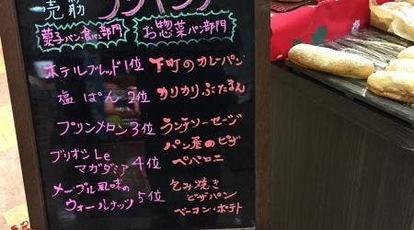 売筋 ランキング
菓子パン食パン部門 お惣菜パン部門
ホテルブレッド 1位 下町のカレーパン
塩ぱん 2位 カリカリぶたまん
プリンメロン 3位 ランチソーセージ
ブリオシLe
マカダミア 4位 パン屋のピザ
ペパロニ
メープル風味の
ウォールナッツ 5位 包み焼き
ピザパン
ベーコン・ポテト